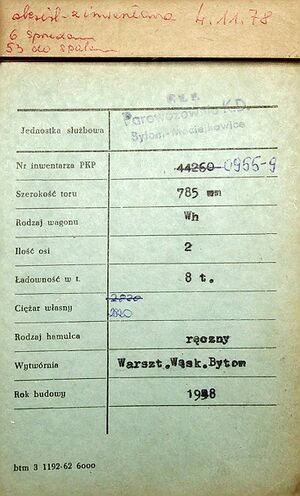 skreśl. z inwentarza 4.11.78
6 sprzedano
53 do spalenia
P.K.P.
Parowozownia K.D.
Bytom-Maciejkowice
Jednostka służbowa
Nr inwentarza PKP 44260 -0955-9
Szerokość toru 785 mm
Rodzaj wagonu Wh
Ilość osi 2
Ładowność w t. 8 t.
Ciężar własny 2820
2820
Rodzaj hamulca ręczny
Wytwórnia Warszt.Wąsk.Bytom
Rok budowy 1958
btm 3 1192-62 6000